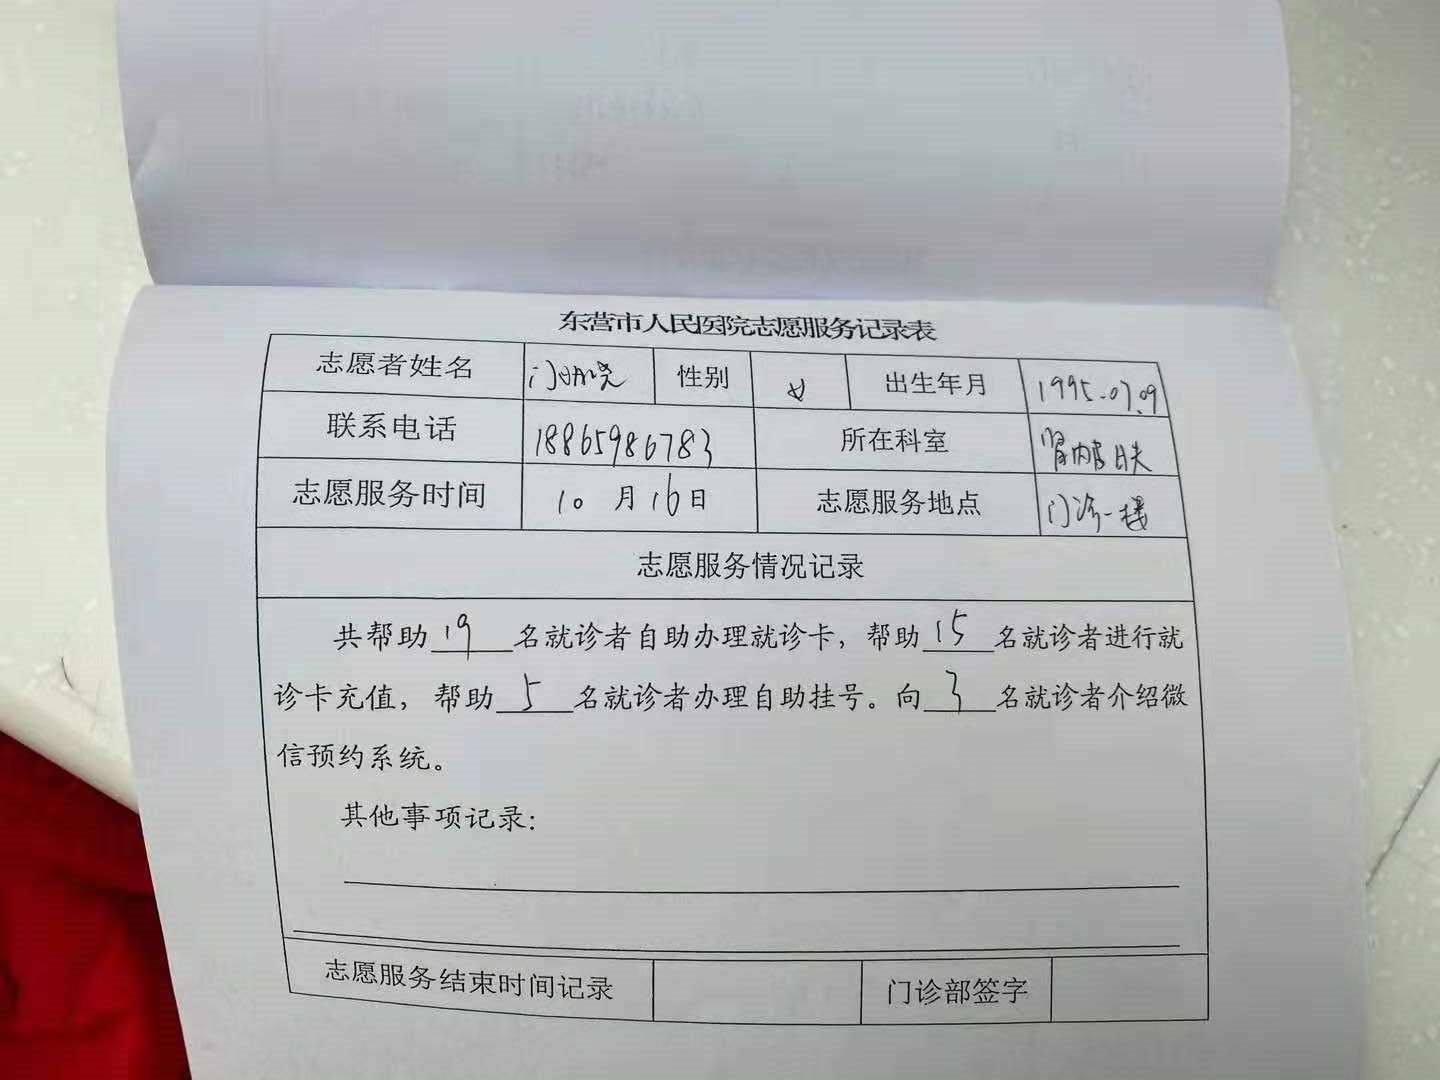 东营市人民医院志愿服务记录表
志愿者姓名 门明晓 性别 女 出生年月 1995.07.09
联系电话 18865986783 所在科室 肾内皮肤
志愿服务时间 10月16日 志愿服务地点 门诊一楼
志愿服务情况记录
共帮助19名就诊者自助办理就诊卡，帮助15名就诊者进行就
诊卡充值，帮助5名就诊者办理自助挂号。向3名就诊者介绍微
信预约系统。
其他事项记录：
志愿服务结束时间记录 门诊部签字